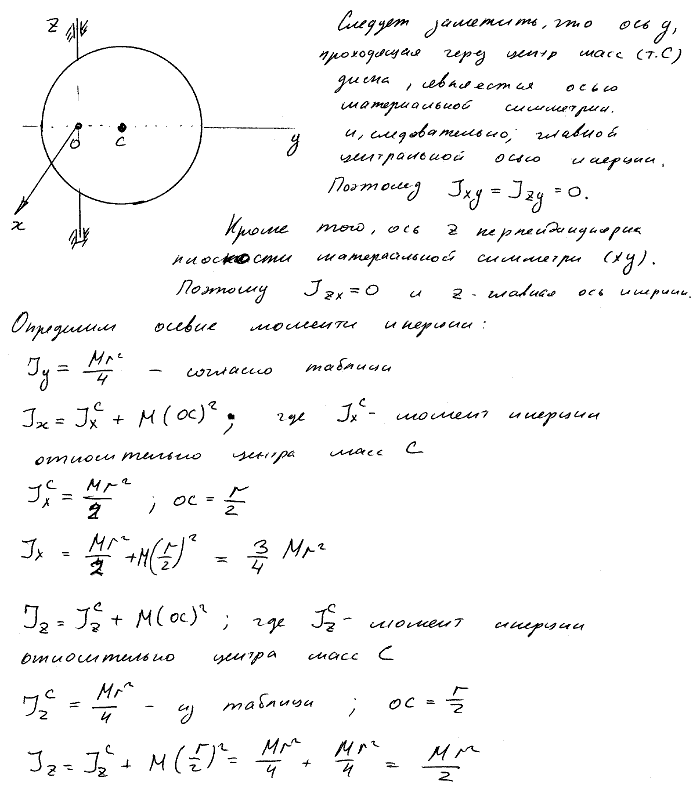 z
Следует заметить, что ось y,
проходящая через центр масс (т.С)
диска, является осью
материальной симметрии.
и, следовательно, главной
центральной осью инерции.
Поэтому J_xy = J_zy = 0.
O C y
x
Кроме того, ось z перпендикулярна
плоскости материальной симметри (xy).
Поэтому J_zx = 0 и z - главная ось инерции.
Определим осевие моменти инерции:
J_y = Mr²/4 – согласно таблици
J_x = J_x^C + M(OC)²; где J_x^C - момент инерции
относительно центра масс C
J_x^C = Mr²/2 ; OC = r/2
J_x = Mr²/2 + M(r/2)² = 3/4 Mr²
J_z = J_z^C + M(OC)² ; где J_z^C - момент инерции
относительно центра масс C
J_z^C = Mr²/4 - из таблици ; OC = r/2
J_z = J_z^C + M(r/2)² = Mr²/4 + Mr²/4 = Mr²/2